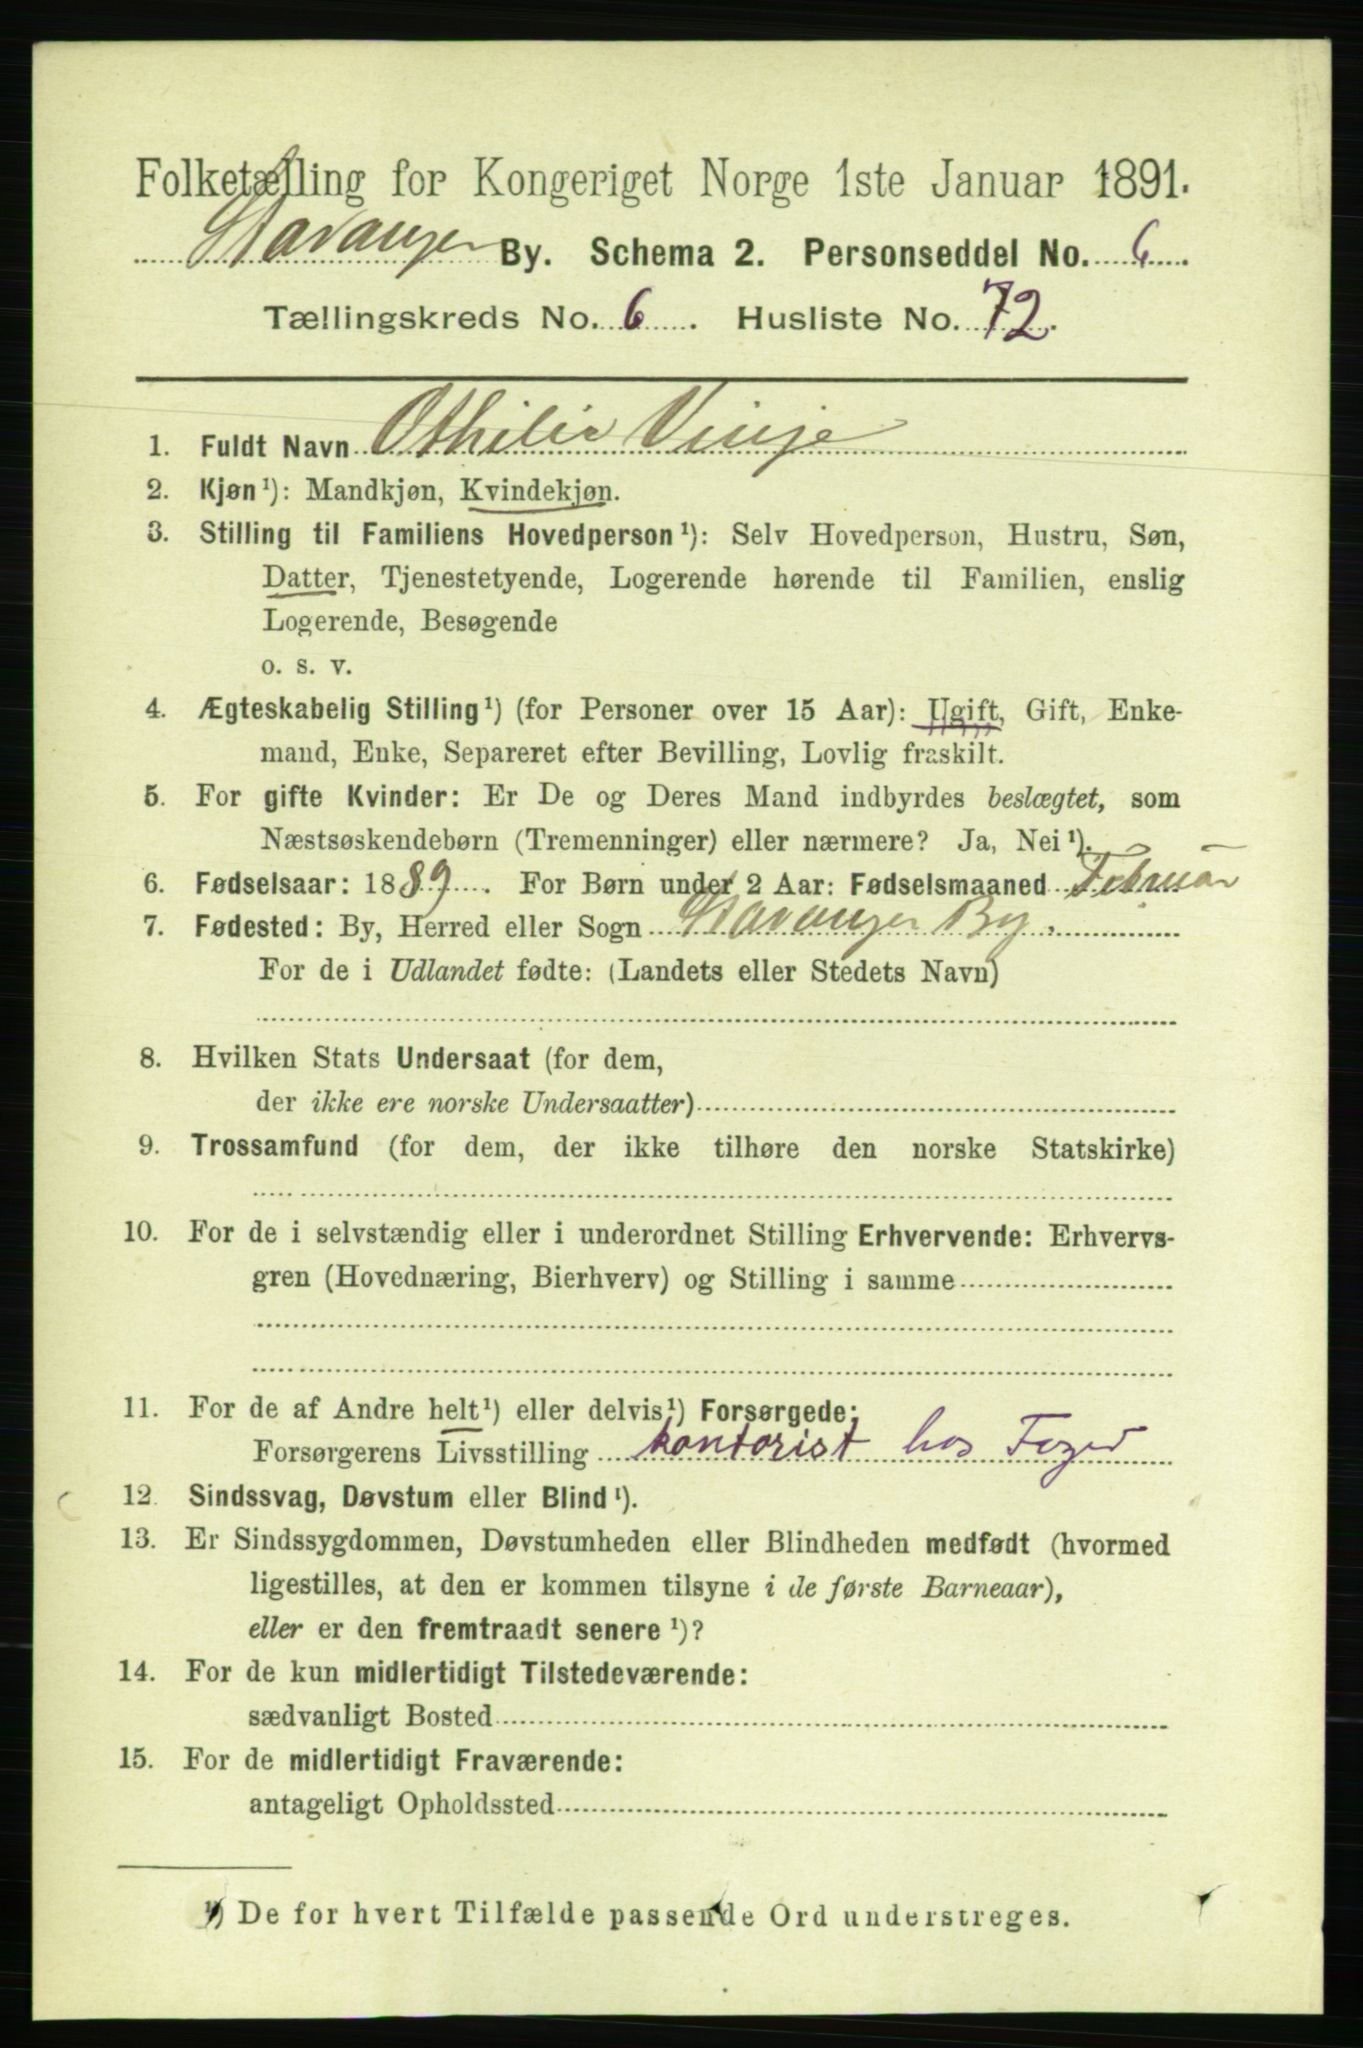 Folketælling for Kongeriget Norge 1ste Januar 1891.
Stavanger By. Schema 2. Personseddel No. 6
Tællingskreds No. 6. Husliste No. 72.
1. Fuldt Navn Othilie Vinje
2. Kjøn¹): Mandkjøn, Kvindekjøn.
3. Stilling til Familiens Hovedperson¹): Selv Hovedperson, Hustru, Søn,
Datter, Tjenestetyende, Logerende hørende til Familien, enslig
Logerende, Besøgende
o. s. v.
4. Ægteskabelig Stilling¹) (for Personer over 15 Aar): Ugift, Gift, Enke-
mand, Enke, Separeret efter Bevilling, Lovlig fraskilt.
5. For gifte Kvinder: Er De og Deres Mand indbyrdes beslægtet, som
Næstsøskendebørn (Tremenninger) eller nærmere? Ja, Nei¹).
6. Fødselsaar: 1889. For Børn under 2 Aar: Fødselsmaaned Februar
7. Fødested: By, Herred eller Sogn Stavanger By.
For de i Udlandet fødte: (Landets eller Stedets Navn)
8. Hvilken Stats Undersaat (for dem,
der ikke ere norske Undersaatter)
9. Trossamfund (for dem, der ikke tilhøre den norske Statskirke)
10. For de i selvstændig eller i underordnet Stilling Erhvervende: Erhvervs-
gren (Hovednæring, Bierhverv) og Stilling i samme
11. For de af Andre helt¹) eller delvis¹) Forsørgede:
Forsørgerens Livsstilling kontorist hos Foged
12. Sindssvag, Døvstum eller Blind¹).
13. Er Sindssygdommen, Døvstumheden eller Blindheden medfødt (hvormed
ligestilles, at den er kommen tilsyne i de første Barneaar),
eller er den fremtraadt senere¹)?
14. For de kun midlertidigt Tilstedeværende:
sædvanligt Bosted
15. For de midlertidigt Fraværende:
antageligt Opholdssted
¹) De for hvert Tilfælde passende Ord understreges.